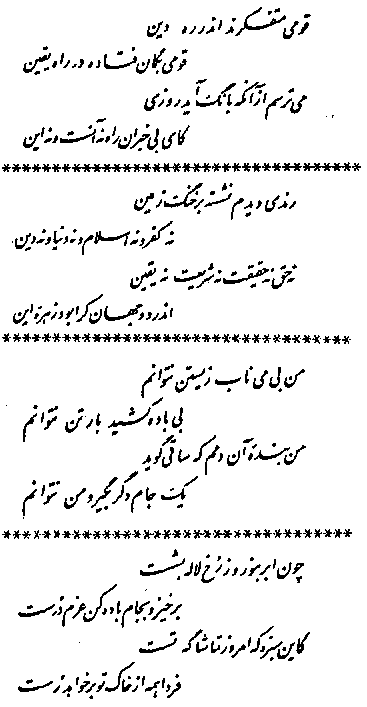 قومی متفکرند اندر ره دین
قومی بگمان فتاده در راه یقین
می ترسم از آنکه بانگ آید روزی
کای بی خبران راه نه آنست و نه این
************************************
رندی دیدم نشسته بر خنگ زمین
نه کفر و نه اسلام و نه دنیا و نه دین
نه حق نه حقیقت نه شریعت نه یقین
اندر دو جهان کرا بود زهره این
************************************
من بی می ناب زیستن نتوانم
بی باده کشید بار تن نتوانم
من بنده آن دمم که ساقی گوید
یک جام دگر بگیر و من نتوانم
************************************
چون ابر بنوروز رخ لاله بشست
برخیز و بجام باده کن عزم درست
کاین سبزه که امروز تماشاگه تست
فردا همه از خاک تو برخواهد رست